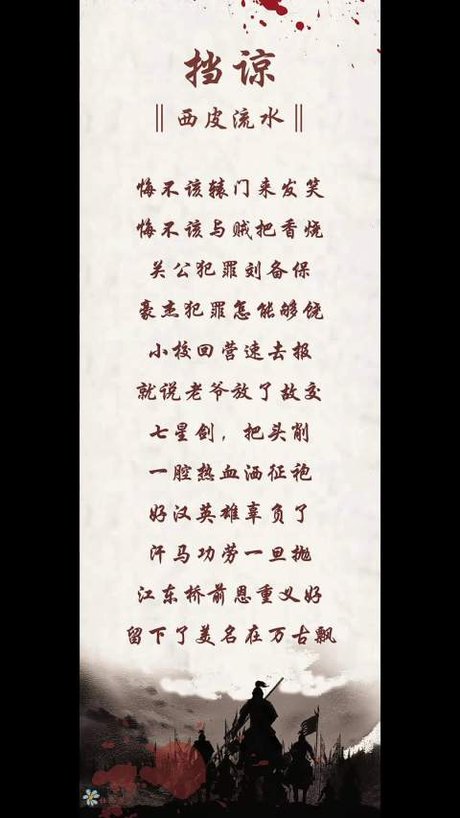 挡谅
‖西皮流水‖
悔不该辕门来发笑
悔不该与贼把香烧
关公犯罪刘备保
豪杰犯罪怎能够饶
小校回营速去报
就说老爷放了故交
七星剑，把头削
一腔热血洒征袍
好汉英雄辜负了
汗马功劳一旦抛
江东桥前恩重义好
留下了美名在万古飘